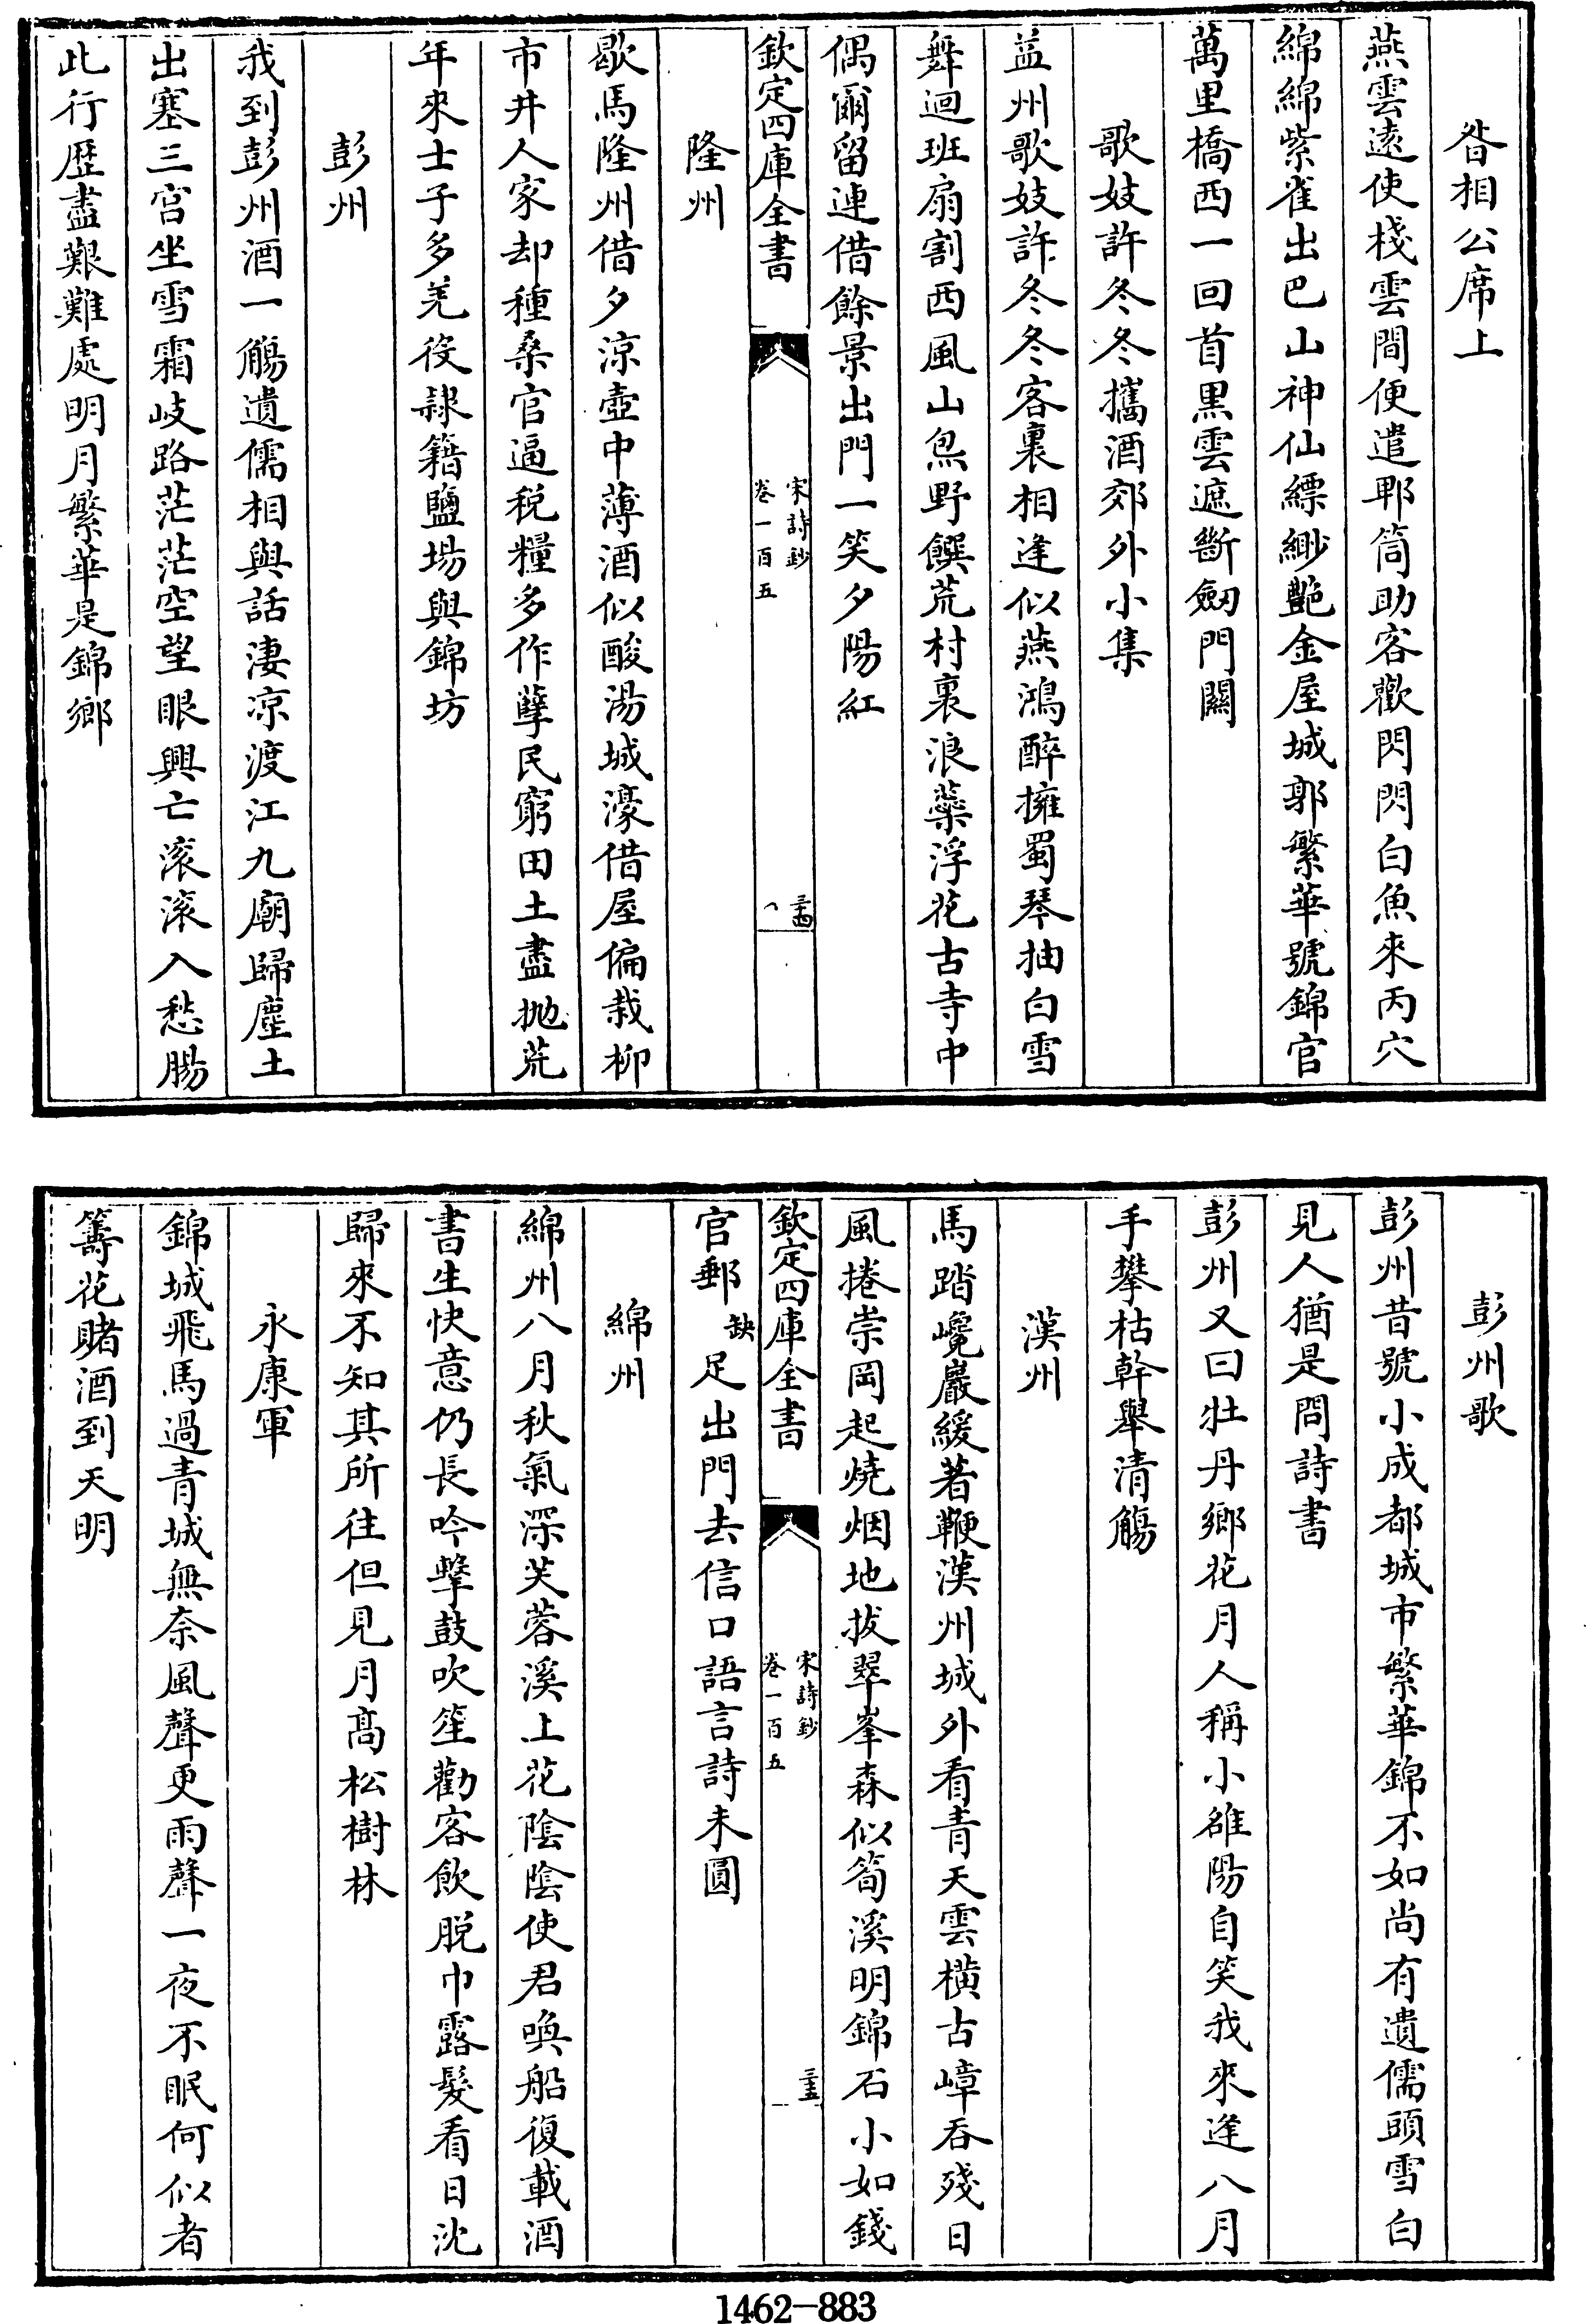 昝相公席上
燕雲遠使棧雲間便遣郫筒助客歡閃閃白魚來丙穴
綿綿紫雀出巴山神仙縹緲艷金屋城郭繁華號錦官
萬里橋西一回首黒雲遮斷劒門闗
歌妓許冬冬攜酒郊外小集
益州歌妓許冬冬客裏相逢似燕鴻醉擁蜀琴抽白雪
舞迴班扇割西風山炰野饌荒村裏浪蘂浮花古寺中
偶爾留連借餘景出門一笑夕陽紅
欽定四庫全書
宋詩鈔
卷一百五
三十四
隆州
歇馬隆州借夕涼壺中薄酒似酸湯城濠借屋偏栽柳
市井人家却種桑官逼税糧多作孽民窮田土盡抛荒
年來士子多差役隷籍鹽場與錦坊
彭州
我到彭州酒一觴遺儒相與話淒涼渡江九廟歸塵土
出塞三宫坐雪霜岐路茫茫空望眼興亡滚滚入愁腸
此行歴盡艱難處明月繁華是錦鄉
彭州歌
彭州昔號小成都城市繁華錦不如尚有遺儒頭雪白
見人猶是問詩書
彭州又曰牡丹鄉花月人稱小雒陽自笑我來逢八月
手攀枯幹舉清觴
漢州
馬踏巉巖緩著鞭漢州城外看青天雲橫古嶂吞殘日
風捲崇岡起燒烟地拔翠峯森似筍溪明錦石小如錢
欽定四庫全書
宋詩鈔
卷一百五
三十五
官郵缺足出門去信口語言詩未圓
綿州
綿州八月秋氣深芙蓉溪上花陰陰使君喚船復載酒
書生快意仍長吟擊鼓吹笙勸客飲脱巾露髮看日沈
歸來不知其所往但見月髙松樹林
永康軍
錦城飛馬過青城無奈風聲更雨聲一夜不眠何似者
籌花賭酒到天明
1462—883